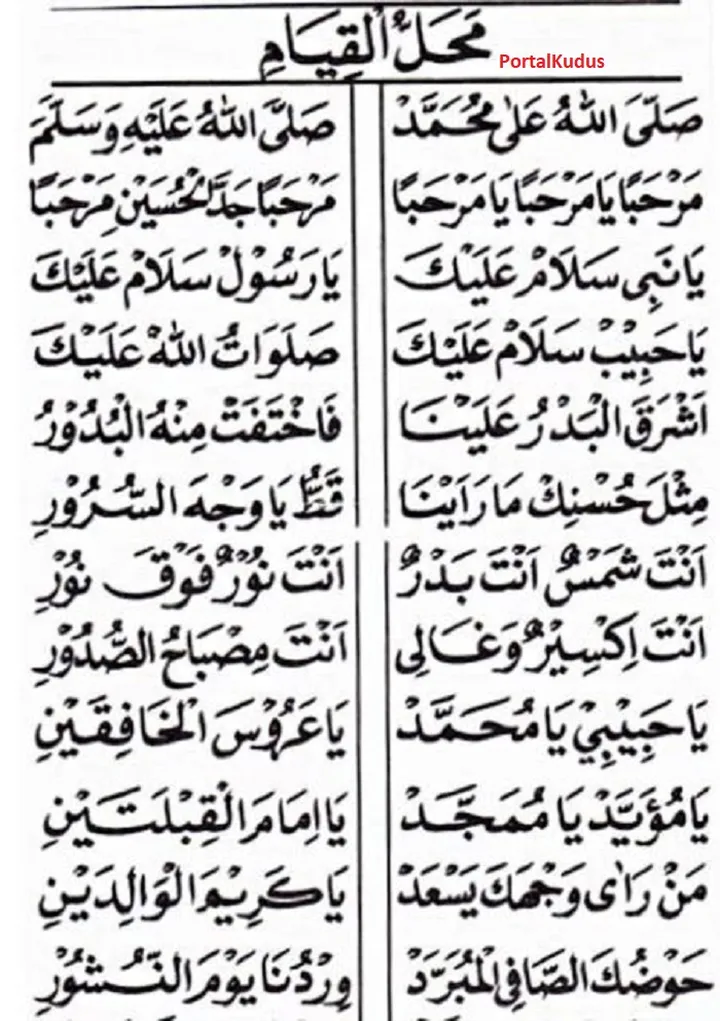 مَحَلُّ الْقِيَامِ
PortalKudus
صَلَّى اللهُ عَلٰى مُحَمَّدْ صَلَّى اللهُ عَلَيْهِ وَسَلَّمْ
مَرْحَبًا يَا مَرْحَبًا يَا مَرْحَبًا مَرْحَبًا جَدَّ الْحُسَيْنِ مَرْحَبًا
يَا نَبِى سَلَامْ عَلَيْكَ يَا رَسُوْلْ سَلَامْ عَلَيْكَ
يَا حَبِيْبْ سَلَامْ عَلَيْكَ صَلَوَاتُ اللهْ عَلَيْكَ
اَشْرَقَ الْبَدْرُ عَلَيْنَا فَاخْتَفَتْ مِنْهُ الْبُدُوْرُ
مِثْلَ حُسْنِكْ مَا رَاَيْنَا قَطُّ يَا وَجْهَ السُّرُوْرِ
اَنْتَ شَمْسٌ اَنْتَ بَدْرٌ اَنْتَ نُوْرٌ فَوْقَ نُوْرِ
اَنْتَ اِكْسِيْرٌ وَغَالِى اَنْتَ مِصْبَاحُ الصُّدُوْرِ
يَا حَبِيْبِيْ يَا مُحَمَّدْ يَا عَرُوْسَ الْخَافِقَيْنِ
يَا مُؤَيَّدْ يَا مُمَجَّدْ يَا اِمَامَ الْقِبْلَتَيْنِ
مَنْ رَاٰى وَجْهَكَ يَسْعَدْ يَا كَرِيْمَ الْوَالِدَيْنِ
حَوْضُكَ الصَّافِى الْمُبَرَّدْ وِرْدُنَا يَوْمَ النُّشُوْرِ